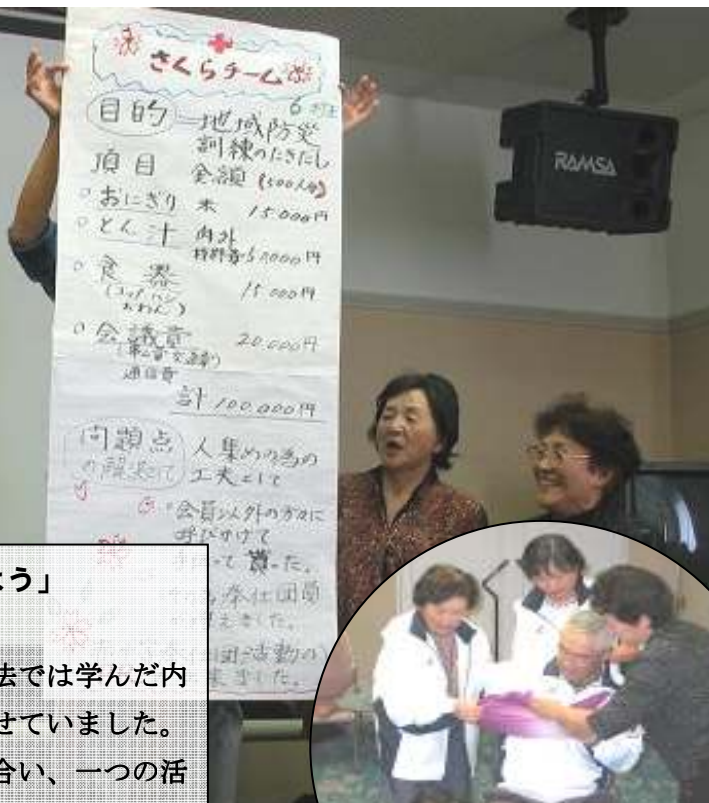 さくらチーム
目的 地域防災
訓練のたきだし
項目 金額 (500人分)
。おにぎり 米 15.000円
。とん汁 肉外
材料費50.000円
。食器 15.000円
。会議費 20.000円
通信費
計 100.000円
問題点 人集めの為の
工夫として
。会員以外の方々に
呼びかけて
貰った。
奉仕団員
ました。
活動の
ました。
RAMSA
よう」
法では学んだ内
せていました。
合い、一つの活